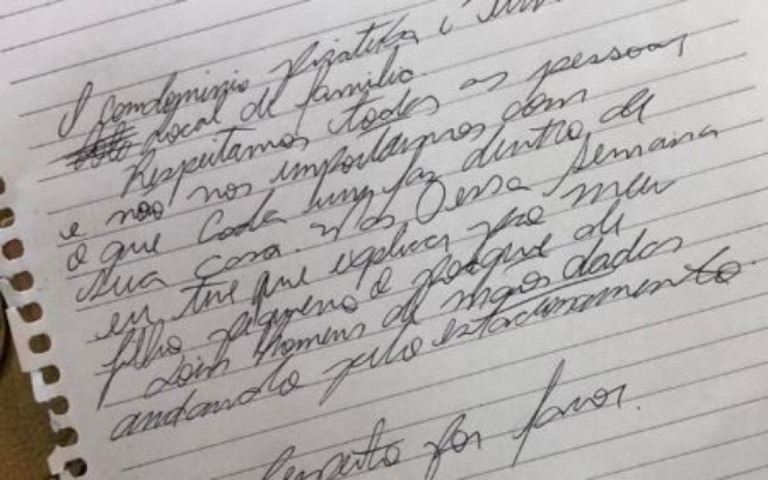 O condominio Piratika é um
local de familia.
Respeitamos todas as pessoas
e não nos importamos com
o que Cada um faz dentro de
sua casa. Mas essa Semana
eu tive que explicar pro meu
filho pequeno o porque de
dois Homens de mãos dadas
andando pelo estacionamento
Respeito por favor.